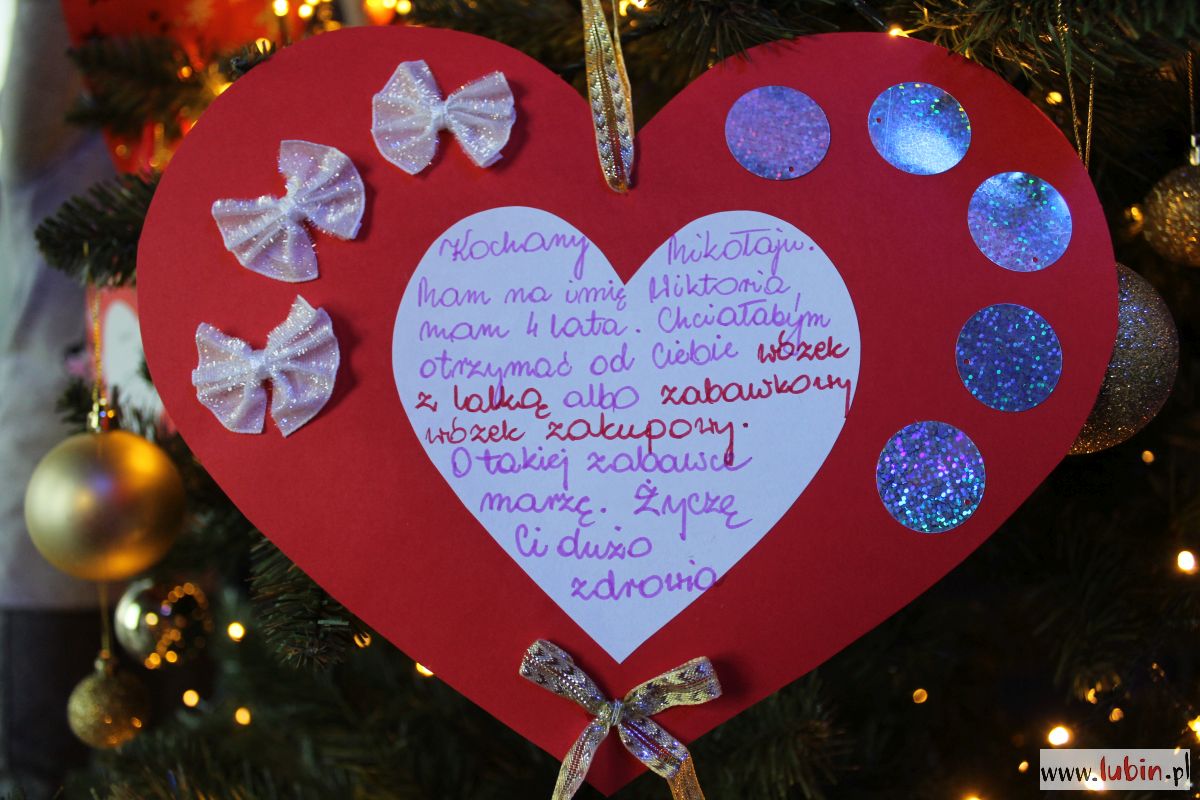 Kochany Mikołaju.
Mam na imię Wiktoria
mam 4 lata. Chciałabym
otrzymać od Ciebie wózek
z lalką albo zabawkowy
wózek zakupowy.
O takiej zabawce
marzę. Życzę
Ci dużo
zdrowia
www.lubin.pl